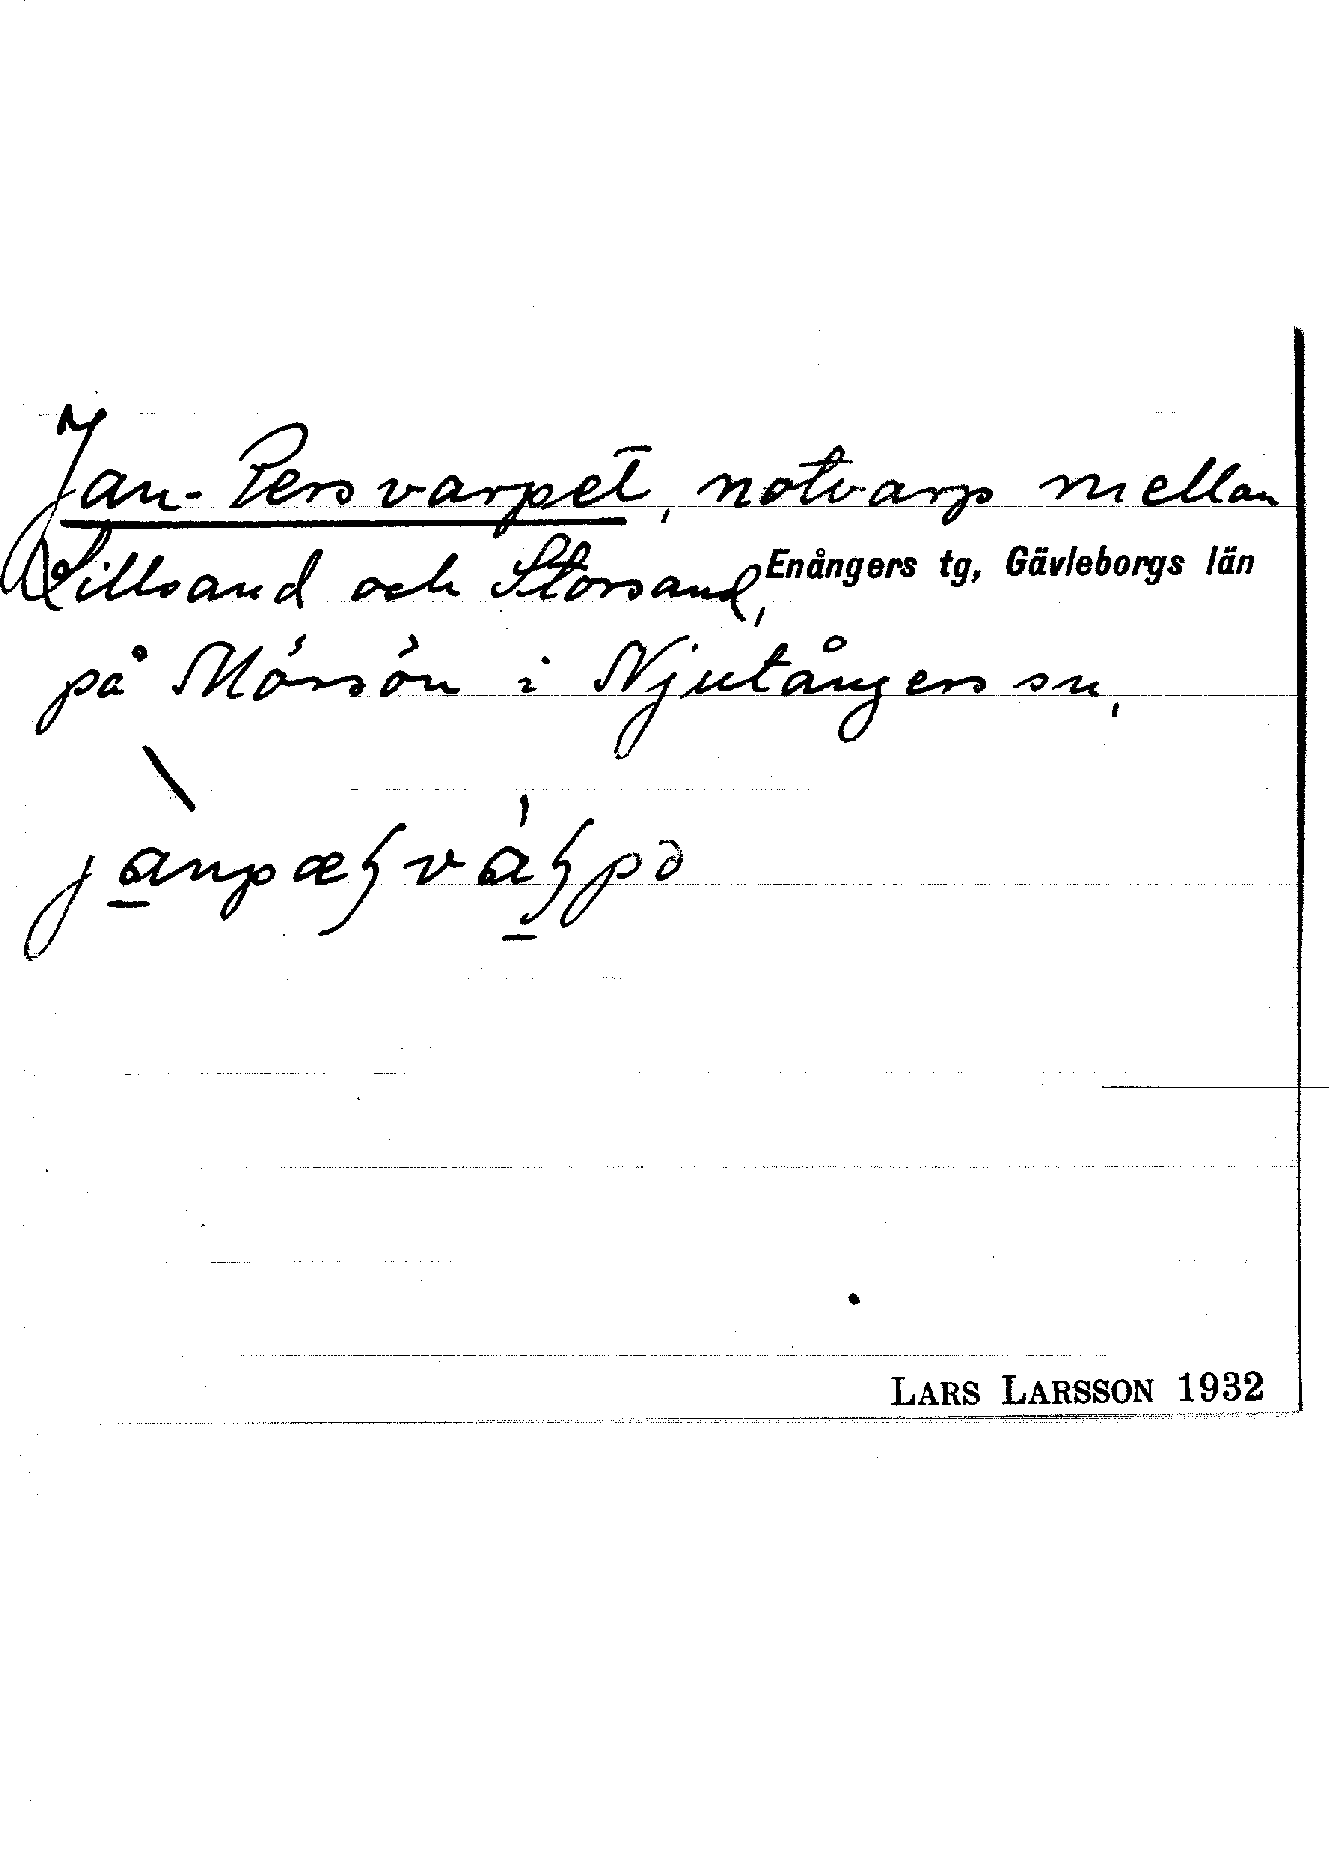 Jan-Persvarpet, notvarp mellan
Lillsand och Storsand,
Enångers tg, Gävleborgs län
på Mörsön i Njutångers sn,
LARS LARSSON 1932